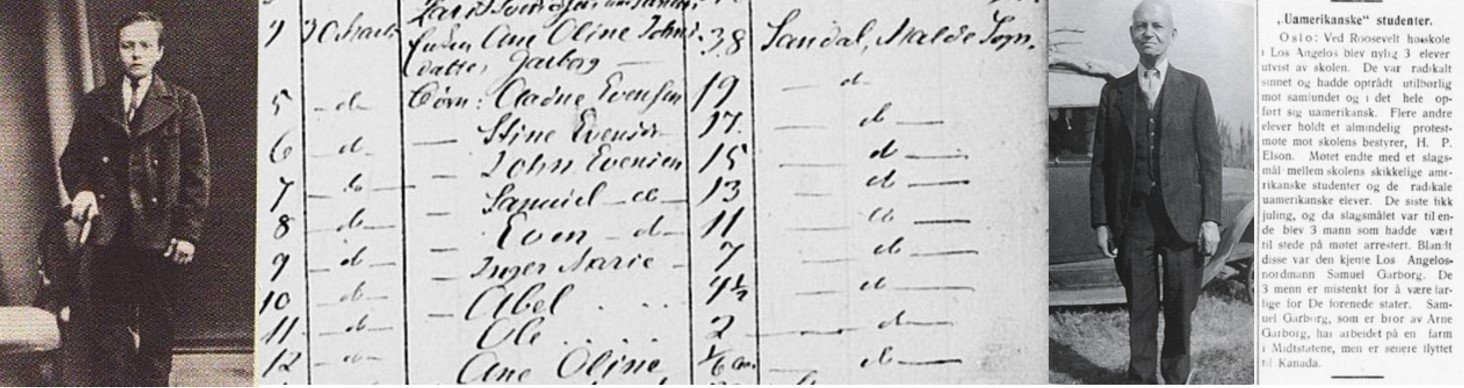 4 30 Marts Enken Ane Oline Johns- 38 Sandal, Malde Sogn.
datter, Garborg —
5 — d — Børn: Evensen 19 — d —
6 — d — — Stine Evensen 17. — d —
7 — d — — John Evensen 15 — d —
8 — d — — Samuel — d — 13 — d —
9 — d — — Even — d — 11 — d —
10 — d — — Inger Marie — 7 — d —
11 — d — — Abel . . . 4½ — d —
12 — d — Ole . . . 2 — d —
Ane Oline — d —
„Uamerikanske“ studenter.
Oslo: Ved Roosevelt høiskole
i Los Angelos blev nylig 3 elever
utvist av skolen. De var radikalt
sinnet og hadde optrådt utilbørlig
mot samfundet og i det hele op-
ført sig uamerikansk. Flere andre
elever holdt et almindelig protest-
møte mot skolens bestyrer, H. P.
Elson. Møtet endte med et slags-
mål mellem skolens skikkelige ame-
rikanske studenter og de radikale
uamerikanske elever. De siste fikk
juling, og da slagsmålet var til en-
de blev 3 mann som hadde vært
til stede på møtet arrestert. Blandt
disse var den kjente Los Angelos-
nordmann Samuel Garborg. De
3 menn er mistenkt for å være far-
lige for De forenede stater. Sam-
uel Garborg, som er bror av Arne
Garborg, har arbeidet på en farm
i Midtstatene, men er senere flyttet
til Kanada.